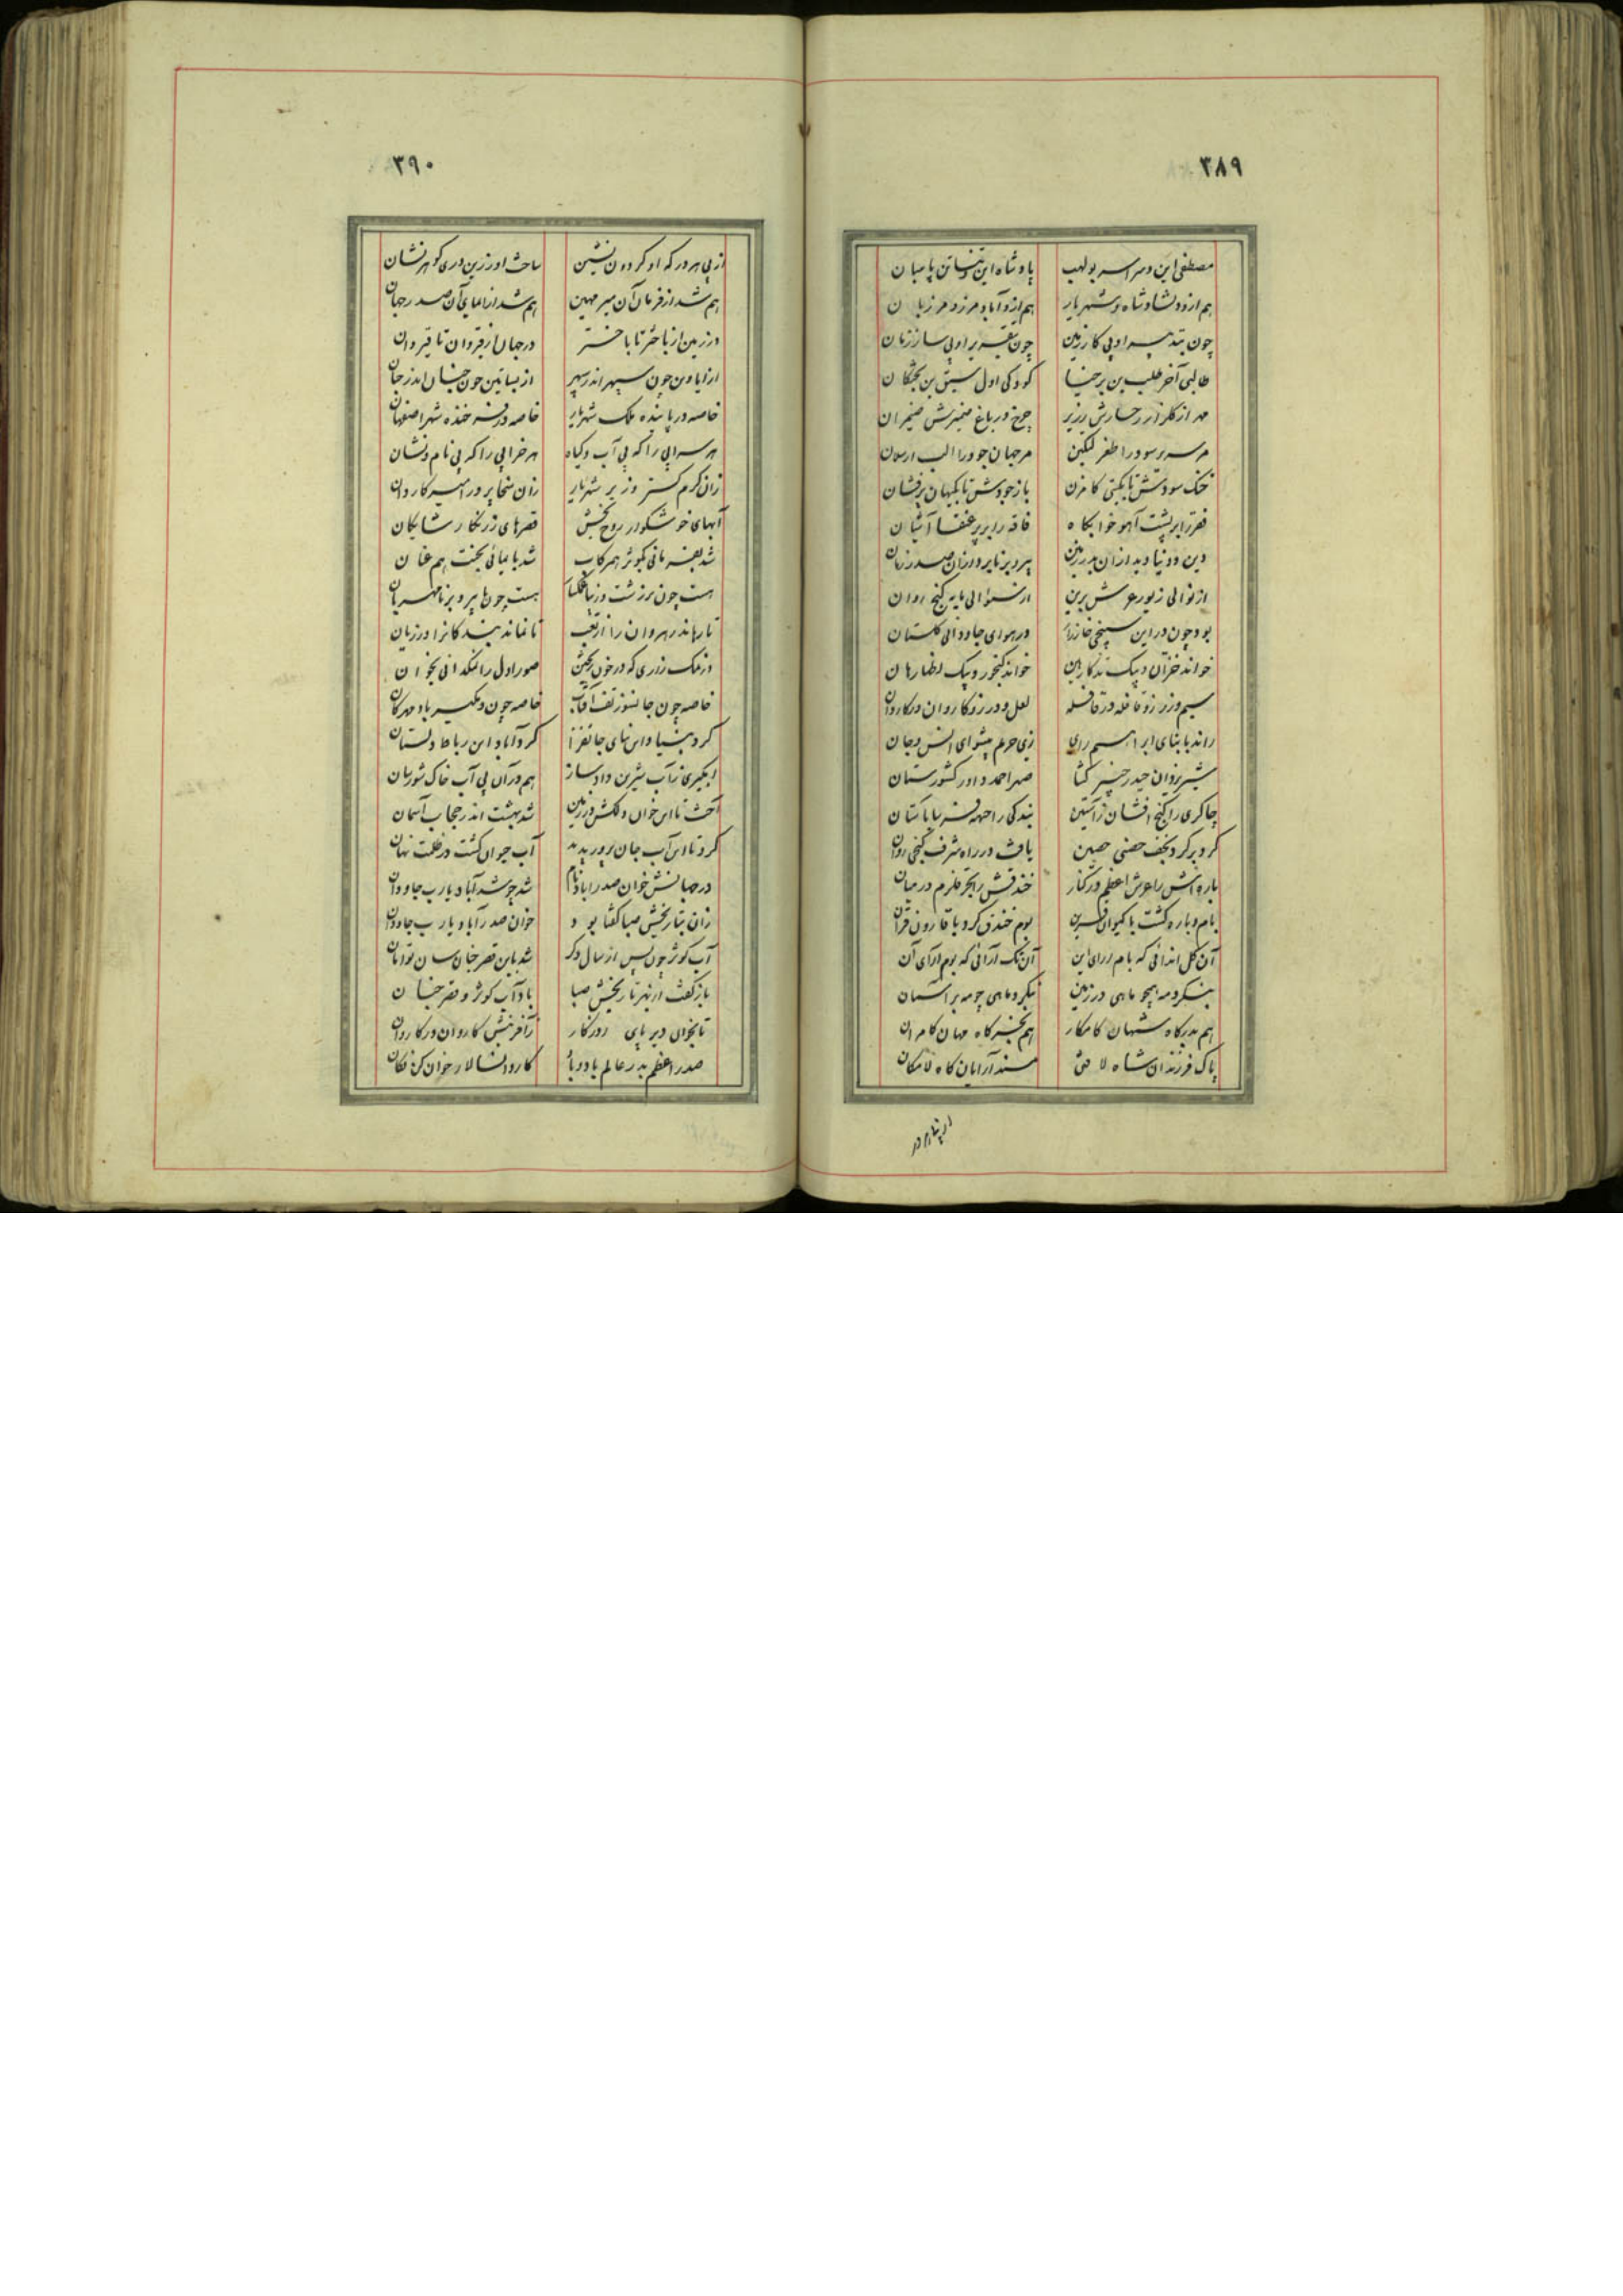 ۳۸۹
مصطفی این و سراسر بولهب پادشاه این و پاسبان
هم ازو دلشاد شاه و شهریار هم ازو آباد مرز و مرزبان
چون بتدبیر او پی کار زمین چون بتقریر او پی ساز زمان
طالبی آخر طلب بن برخیا کودکی اول سبق بن بختکان
مه از گلزار رخسارش زریر چرخ در باغ ضمیرش ضیمران
خنگ سودش تا بگیتی گامزن باز جودش تا بگیهان پرفشان
فقر را بر پشت آهو خوابگاه فاقه را بر پر عنقا آشیان
دین و دنیا دید ازان بدر زمین پیر و برنا برد ازان صدر زمان
از نوالی زیور عرش برین از سؤالی مایه گنج روان
بود چون در این سپنجی خانه رای در هوای جاودانی گلستان
خواند گنجور و پیک
سیم و زر زو قافله در قافله لعل و در زو کاروان در کاروان
راند با بنای ابراهیم رای زی حرم پیشوای انس و جان
شیر یزدان حیدر خیبر گشا صهر احمد داور کشورستان
چاکری را گنج افشان زآستین بندگی را جبهه سا بر آستان
کرد بر گرد نجف حصنی حصین یافت در راه شرف گنجی روان
باره اش را عرش اعظم در کنار خندقش را بحر قلزم در میان
بام و باره گشت با کیوان قرین بوم خندق کرد با قارون قران
آن گل اندائی که بام آرای این آن تک آرائی که بوم آرای آن
بنگرد مه همچو ماهی در زمین نگرد ماهی چو مه بر آسمان
هم بدرگاه شهان کامکار هم مهان کامران
پاک فرزندان شاه لا فتی مسند آرایان گاه لامکان
۳۹۰
از پی هر در که او گردون نشین ساخت او زرین دری گوهر نشان
هم شد از فرمان آن میر مهین هم شد از آن صدر جهان
در زمین از باختر تا باختر در جهان از قیروان تا قیروان
ارزیابی چون سپهر اندر سپهر از بساتین چون جنان اندر جنان
خاصه در پاینده ملک شهریار خاصه در فرخنده شهر اصفهان
هر سرابی را که بی آب و گیاه هر خرابی را که بی نام و نشان
زان کرم گستر وزیر شهریار زان سخا پرور امیر کاردان
آبهای خوشگوار روح بخش قصرهای زرنگار شایگان
شد بعذب مائی بکوثر همرکاب شد بآبادی بجنت هم عنان
هست چون بر زشت و زیبا غمگسار هست چون با پیر و برنا مهربان
تا رهاند رهروان را از تعب تا نماند بندگانرا در زیان
خاصه چون جانسوز تف آفتاب خاصه چون دمگیر باد مهرگان
کرد بنیاد این بنای جانفزا کرد آباد این رباط دلستان
آبگیری ز آب شیرین داد ساز هم در آن بی آب خاک شورسان
آخت تا این خوان دلکش در زمین شد بهشت اندر حجاب آسمان
کرد تا این آب جان پرور پدید آب حیوان گشت در ظلمت نهان
در جهانش خوان صدراباد نام شد چو شد آباد یارب جاودان
زان بتاریخش صبا گفتا بود خوان صدرآباد یارب جاودان
آب کوثر چون پس از سال دگر شد باین قصر جنان سان توامان
باز گفت از بهر تاریخش صبا باد آب کوثر و قصر جنان
تا بخوان دیرپای روزگار ز آفرینش کاروان در کاروان
صدر اعظم بدر عالم باد و باد کاروانسالار خوان کن فکان